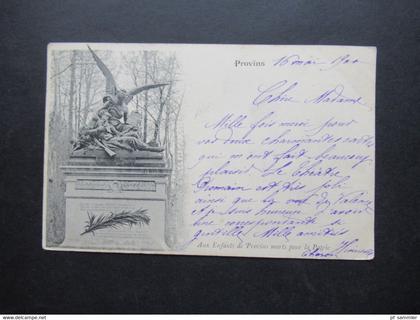 Provins 16 mai 1900
Chère Madame
Mille fois merci pour
vos deux charmantes cartes
qui m'ont fait beaucoup
plaisir. Le théâtre
Romain est très joli
ainsi que la vue de
et je suis heureuse d'avoir
une correspondante si
gentille. Mille amitiés
Aux Enfants de Provins morts pour la Patrie
© pf-sammler